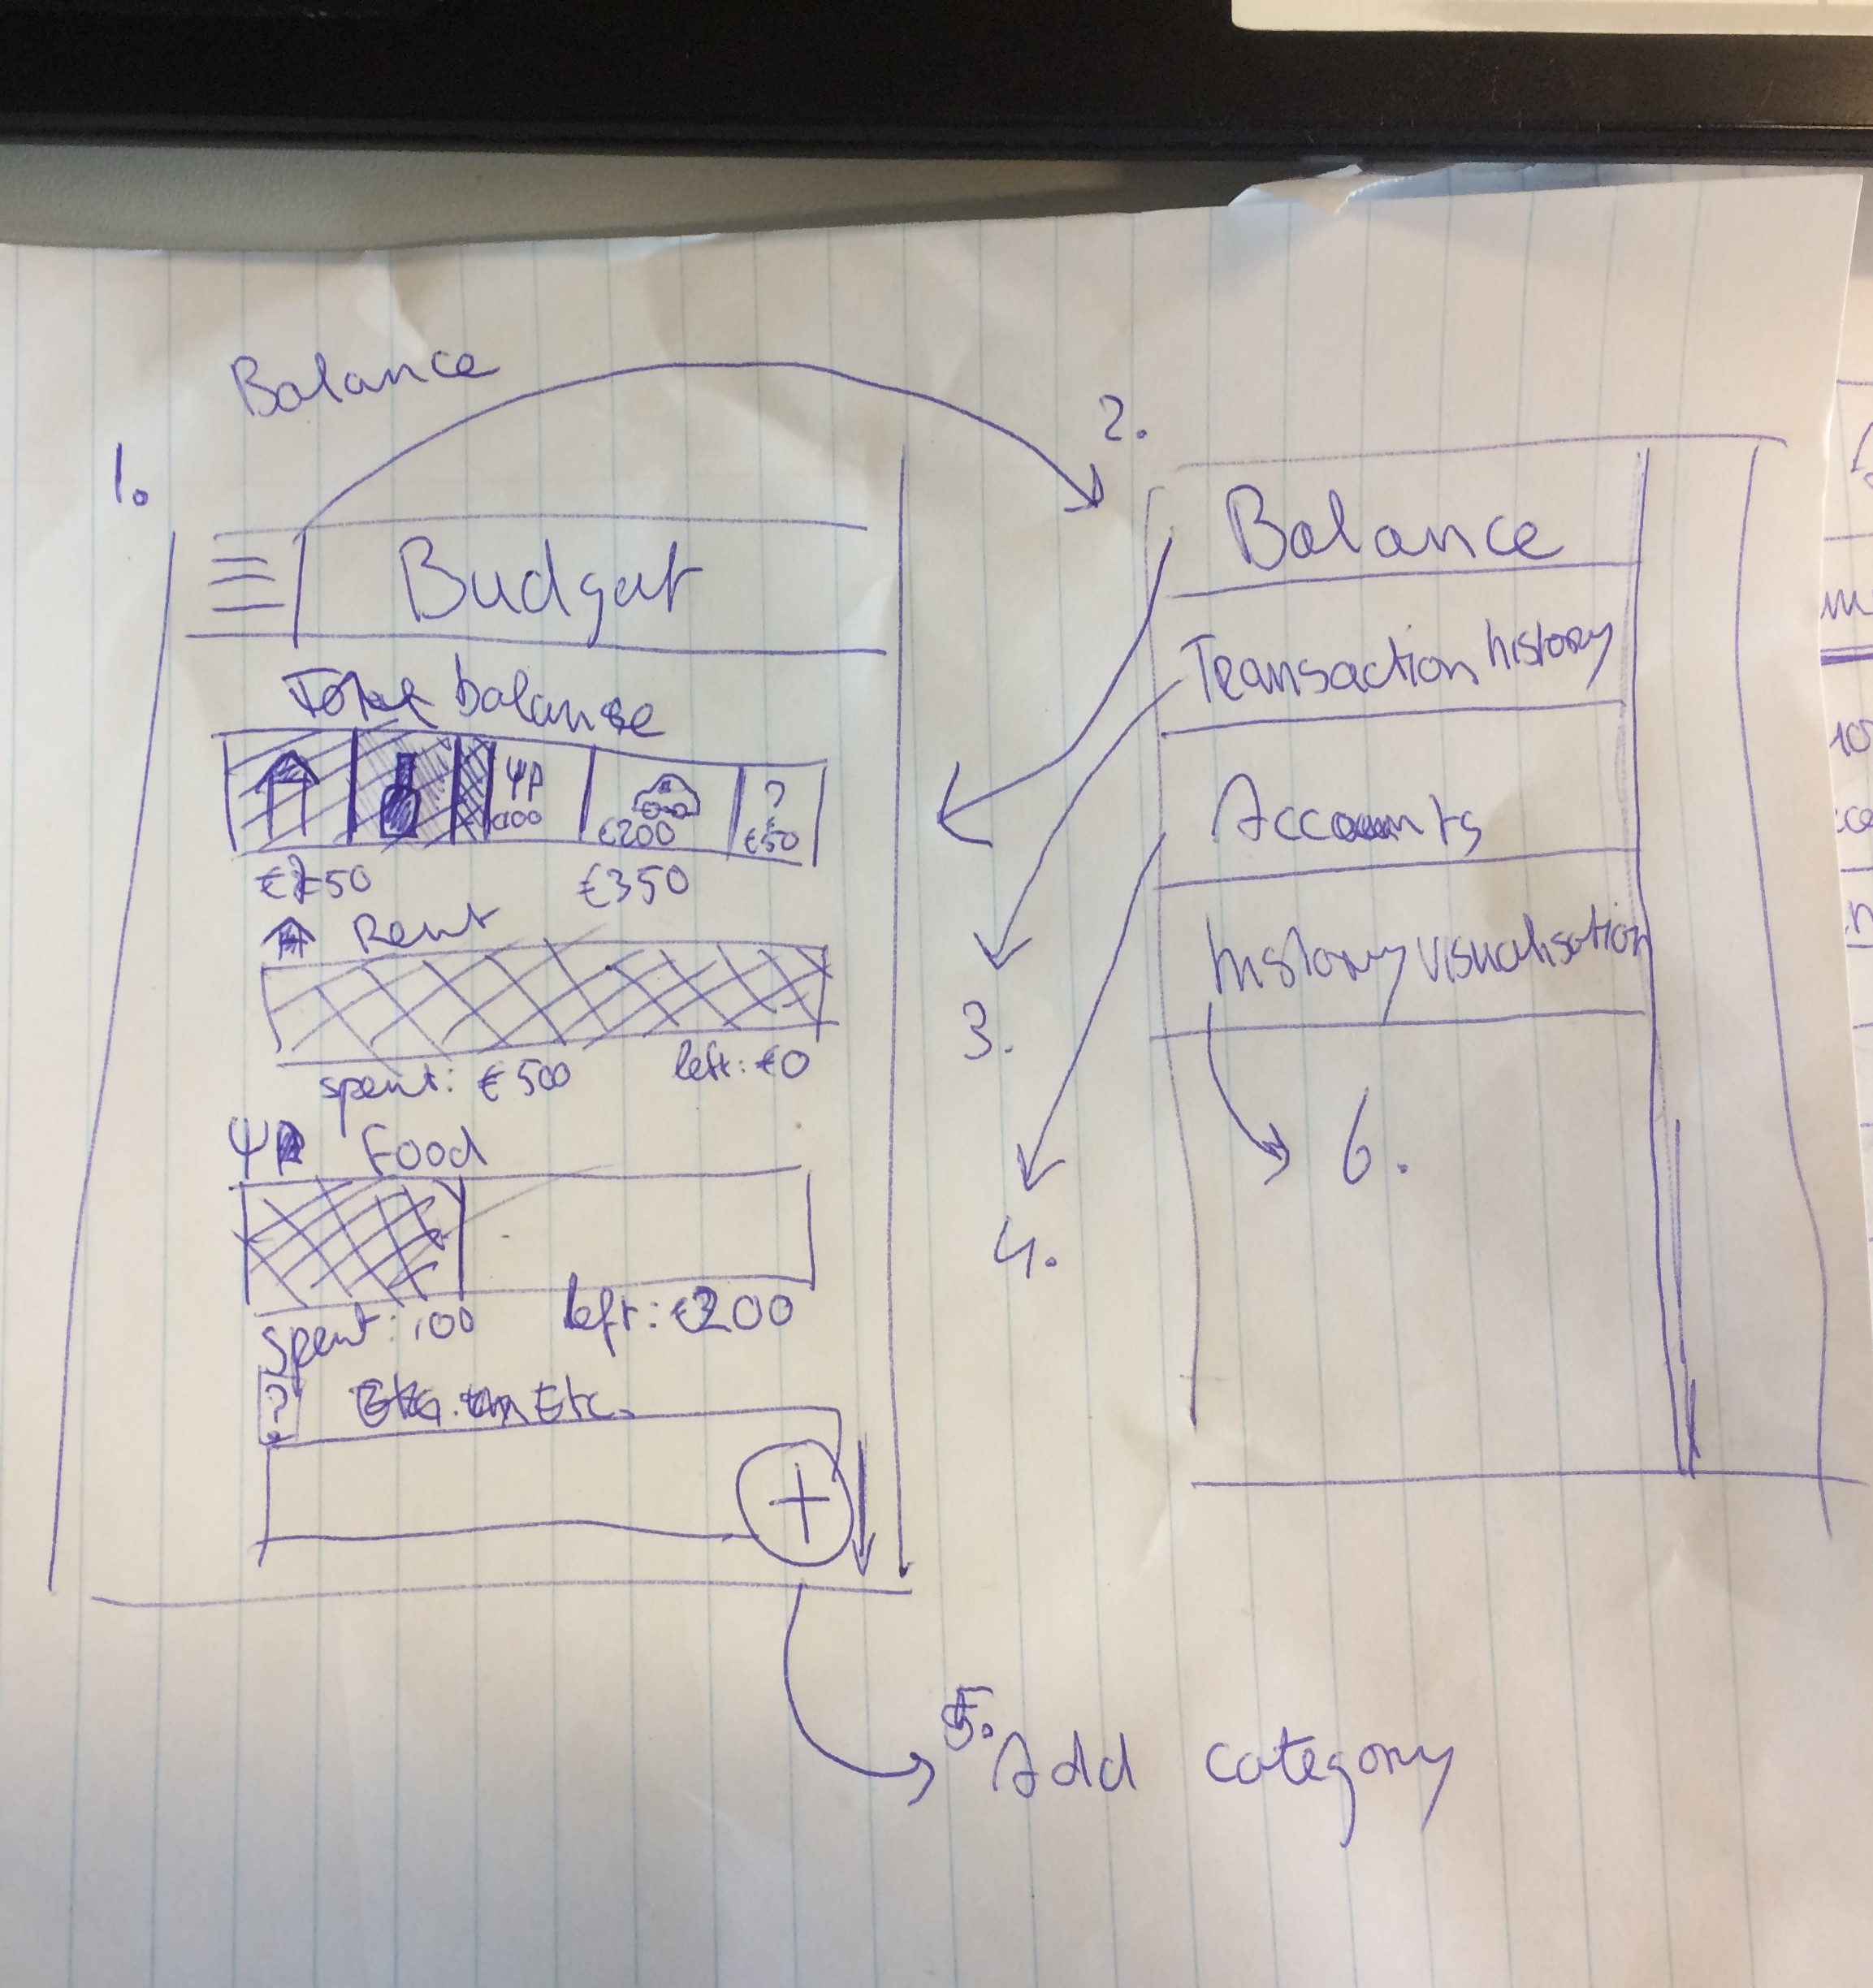 Balance
1.
Budget
Total balance
€200
?
€50
€350
Rent
spent: €500 left: €0
Food
spent: 100 left: €200
?
Etc.
2.
Balance
Transaction history
Accounts
history visualisation
3.
4.
6.
5. Add category